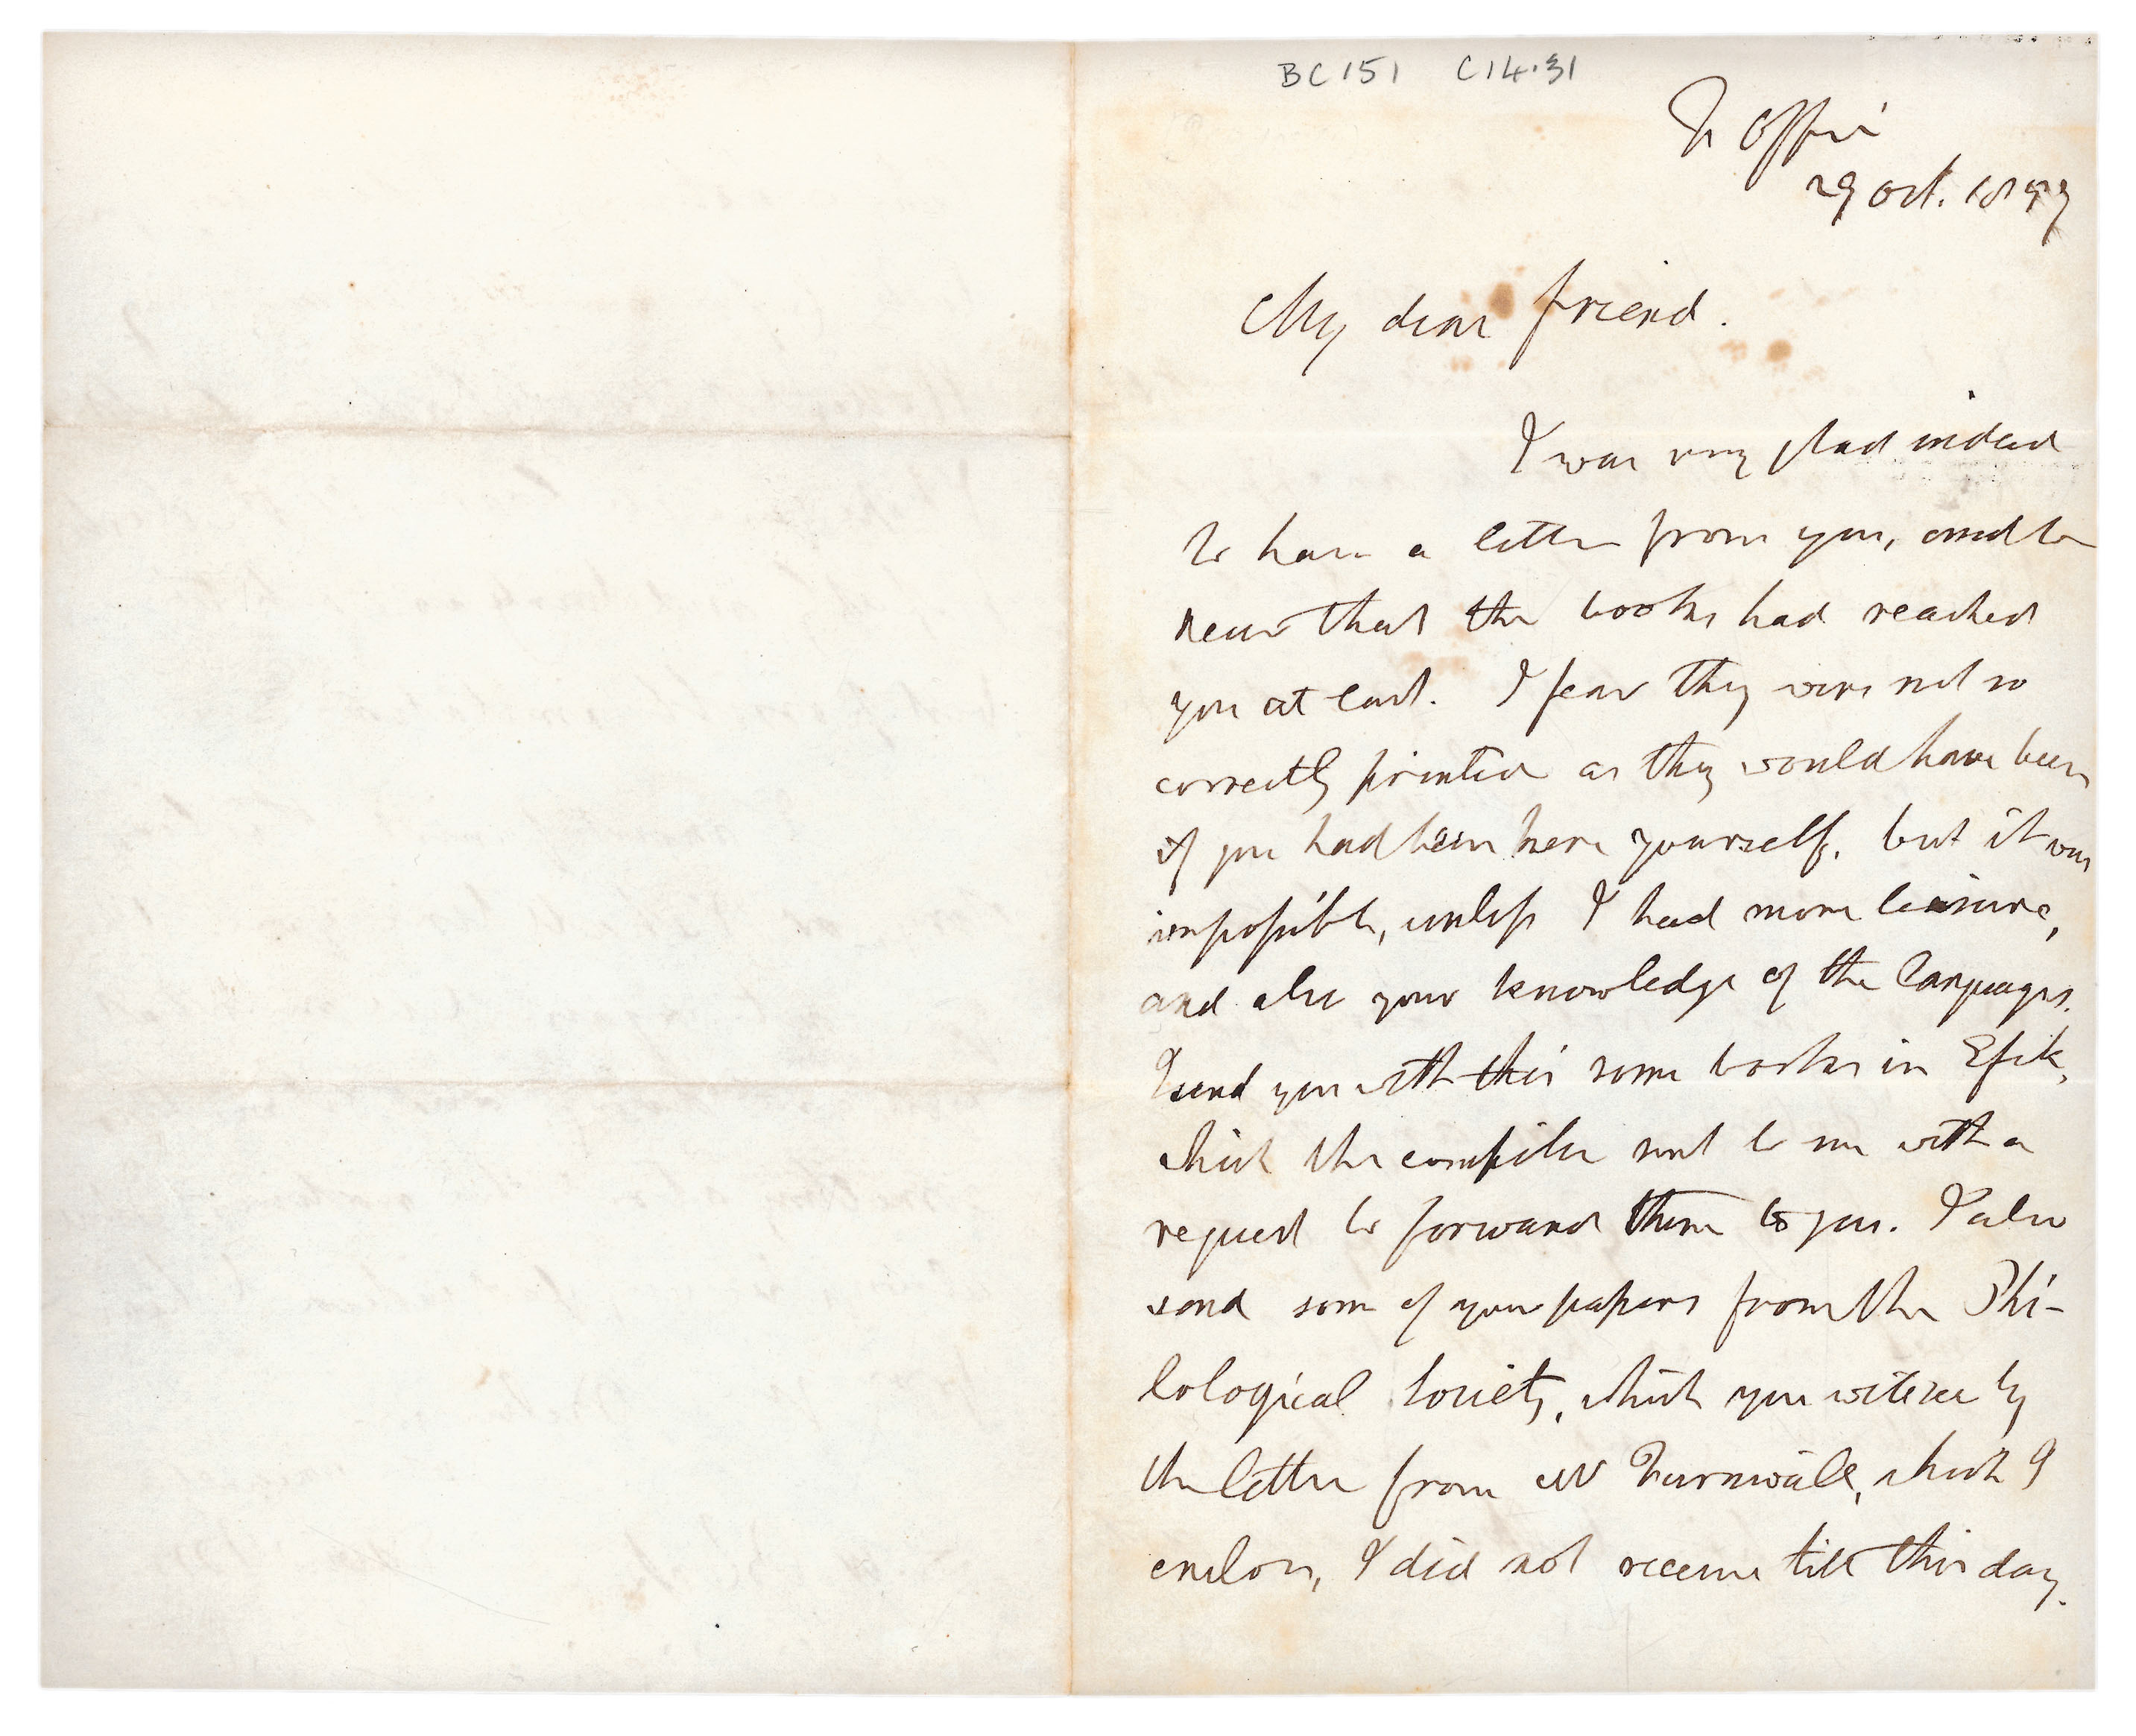 BC 151 C14.31
F. Office
29 Oct. 1877
My dear friend.
I was very glad indeed
to have a letter from you, and to
hear that the books had reached
you at last. I fear they were not so
correctly printed as they would have been
if you had been here yourself, but it was
impossible, unless I had more leisure,
and also your knowledge of the languages.
I send you with this some books in Efik,
which the compiler sent to me with a
request to forward them to you. I also
send some of your papers from the Phi-
lological Society, which you will see by
the letter from Mr Furnivall, which I
enclose, I did not receive till this day.